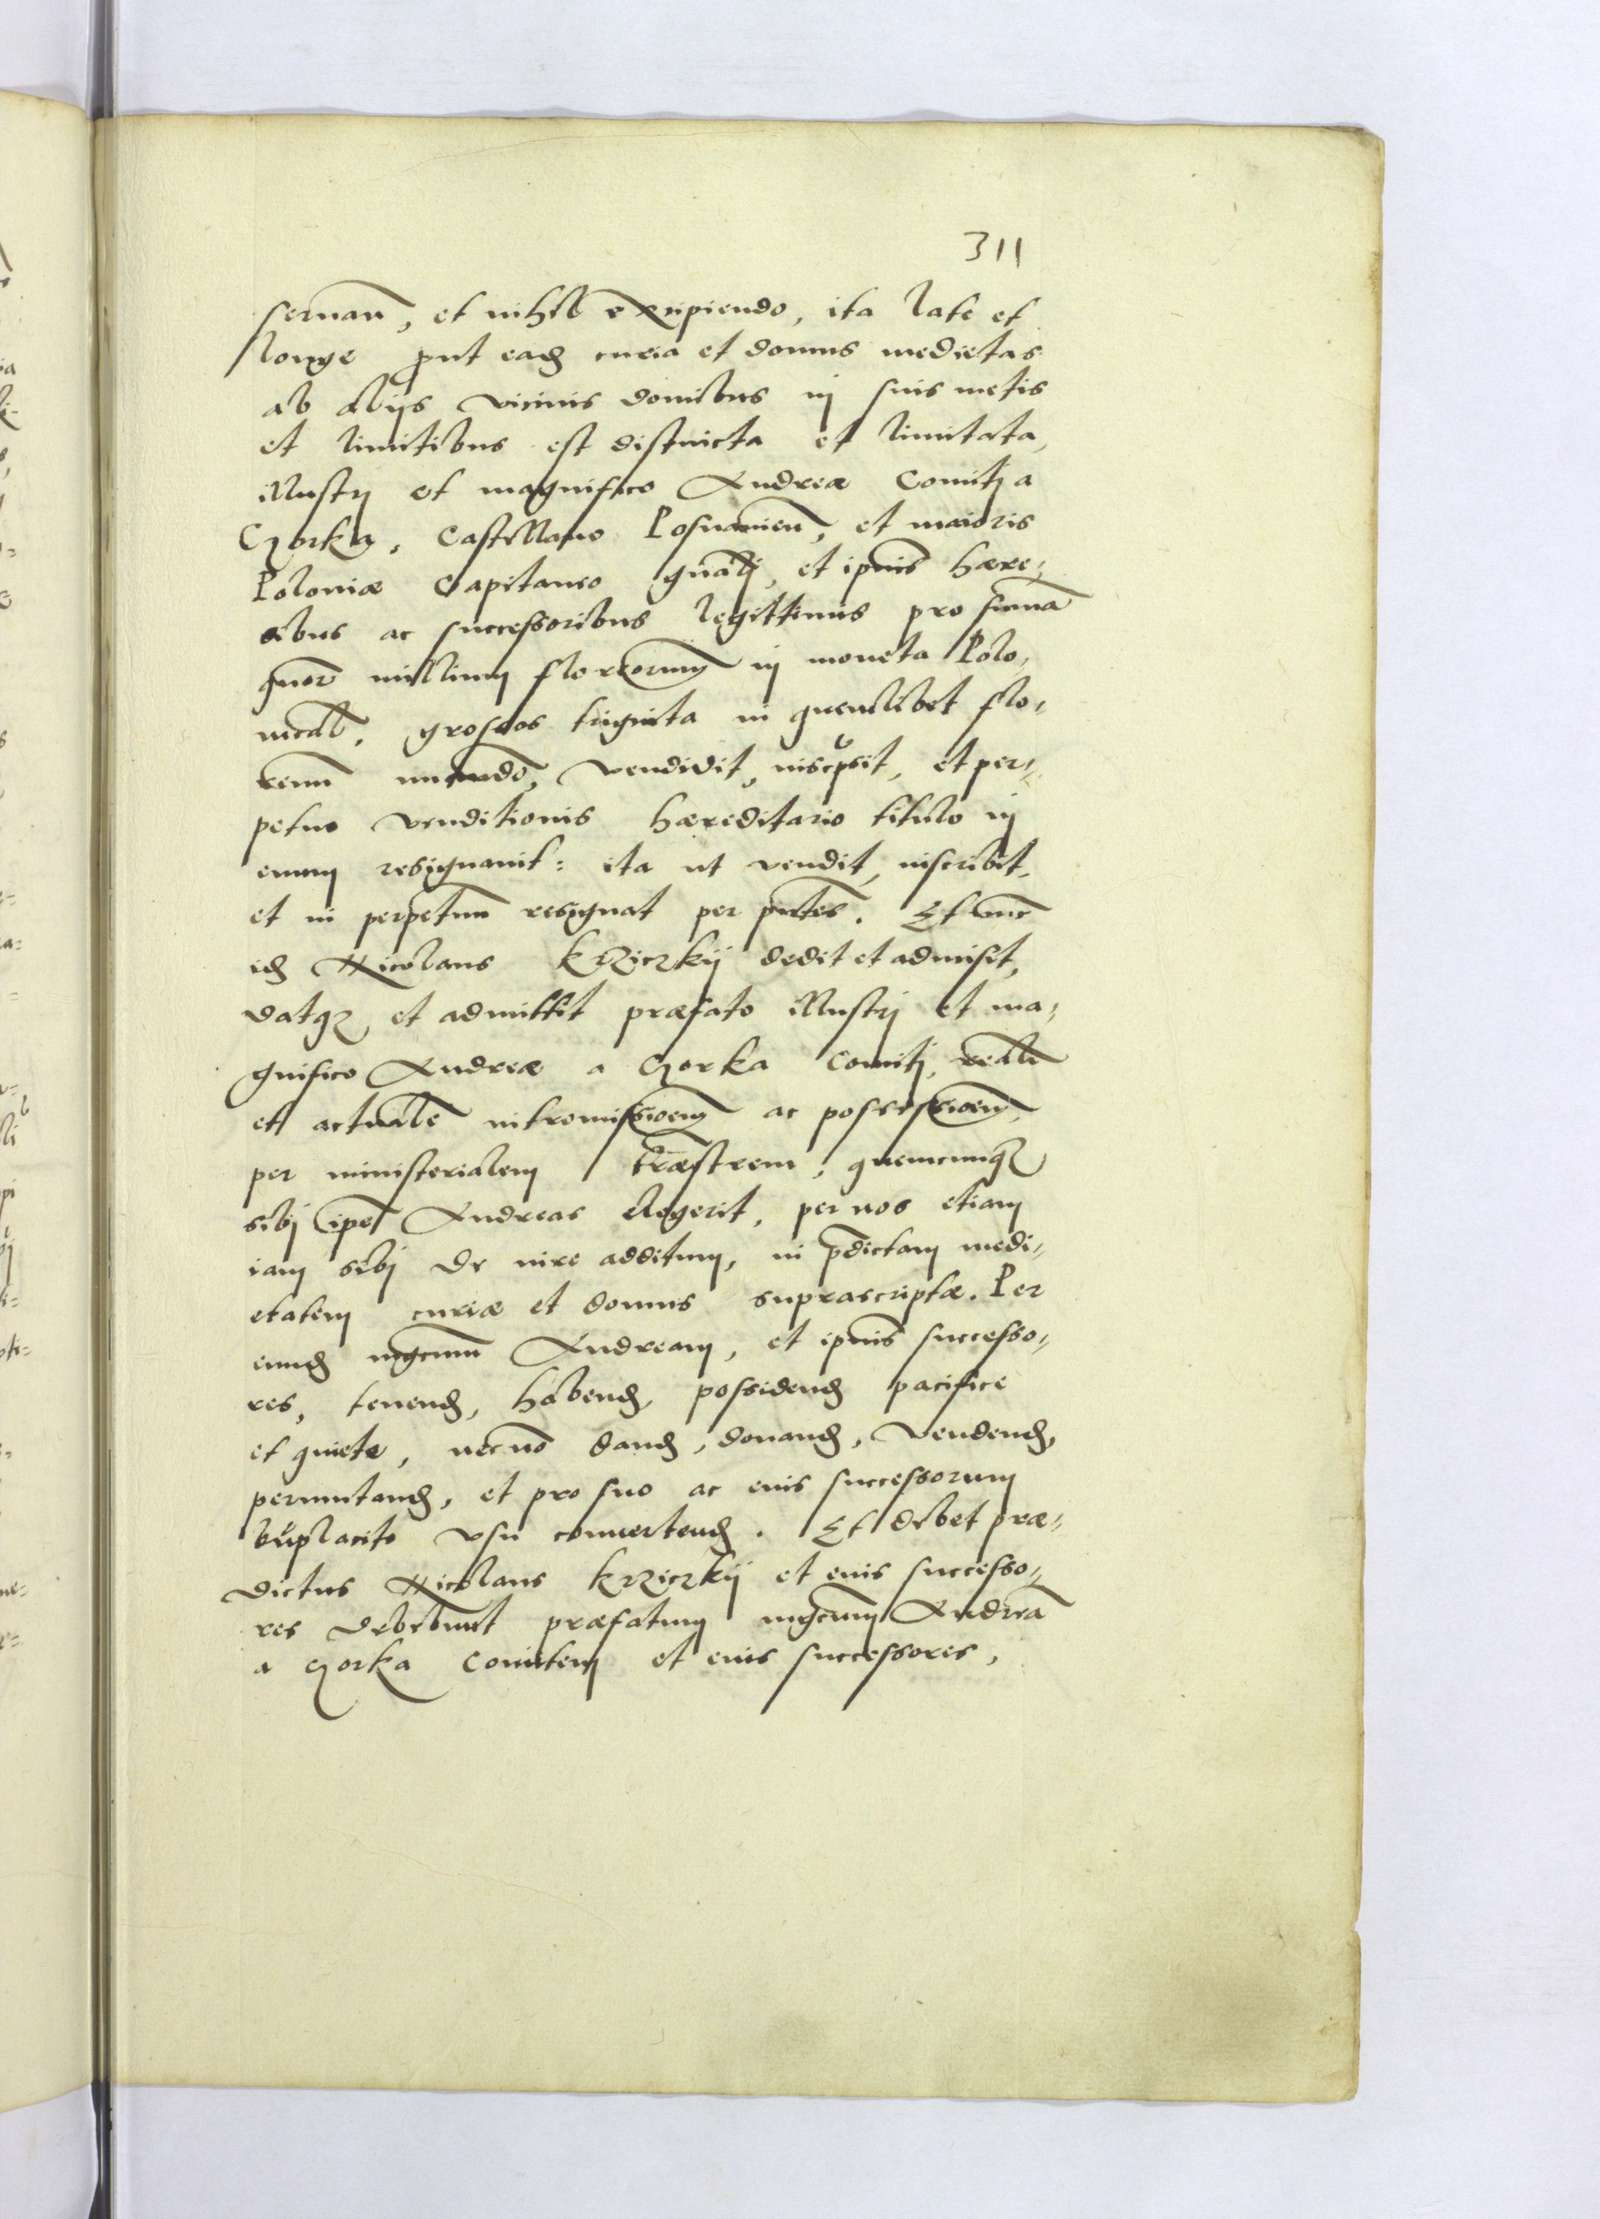 311
seruan̄, et nihil excipiendo, ita late et
longe ꝓut ead curia et domus medietas
ab alijs vicinis domibus in suis metis
et limitibus est distincta et limitata,
illustri et magnifico Andreæ Comiti a
Gorka, Castellano Posnanien̄, et maioris
Poloniæ Capitaneo gn̄ali, et ip̄ius hære-
dibus ac successoribus legittimis pro summa
quor̄ millium florenorum in moneta Polo-
nicali, grossos triginta in quemlibet flo-
renū numando, vendidit, inscripsit, et per-
petuo venditionis hæreditario titulo in
eum resignauit: ita ut vendit, inscribit,
et in perpetuū resignat per pn̄tes. Et nūc
id Nicolaus Krziczkij dedit et admisit,
datqꝫ et admittit præfato illustri et ma-
gnifico Andreæ a Gorka Comiti, realē
et actualē intromissioem ac possessioem,
per ministerialem terrestrem, quemcunqꝫ
sibi ip̄e Andreas elegerit, per nos etiam
iam sibi de iure additum, in p̄dictam medi-
etatem curiæ et domus suprascriptæ. Per
eund mgcum Andream, et ip̄ius successo-
res, tenend, habend, possidend pacifice
et quiete, necnō dand, donand, vendend,
permutand, et pro suo ac eius successorum
bn̄placito vsu conuertend. Et debet præ-
dictus Nicolaus Krziczkij et eius successo-
res debebunt præfatum mgcum Andreā
a Gorka Comitem et eius successores,